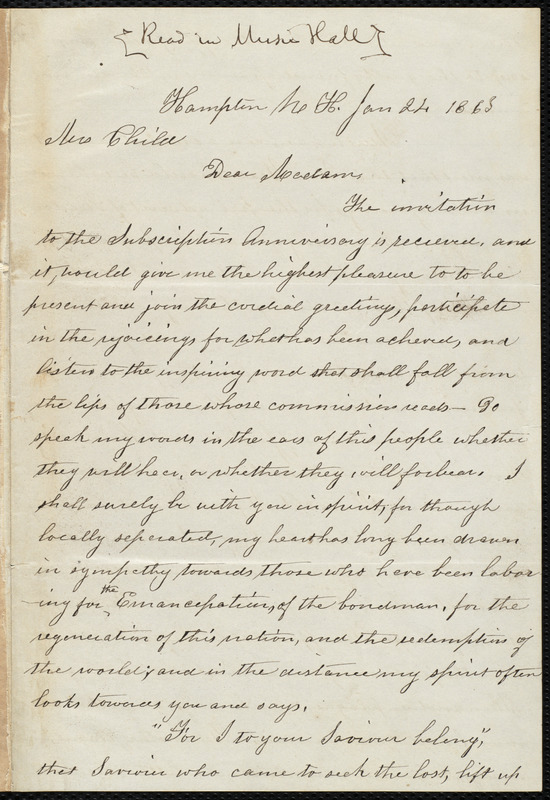 [Read in Music Hall]
Hampton N. H. Jan 24 1863
Mrs Child
Dear Madam,
The invitation
to the Subscription Anniversary is recieved, and
it, would give me the highest pleasure to to be
present and join the cordial greetings, participate
in the rejoicings for what has been acheved, and
listen to the inspiring word that shall fall from
the lips of those whose commission reads— Go
speak my words in the ears of this people whether
they will hear, or whether they will forbear. I
shall surely be with you in spirit; for though
locally seperated, my heart has long been drawn
in sympathy towards those who have been labor
-ing for the Emancepation, of the bondman, for the
regeneration of this nation, and the redemption of
the world; and in the distance my spirit often
looks towards you and says.
"For I to your Saviour belong",
that Saviour who came to seek the lost, lift up